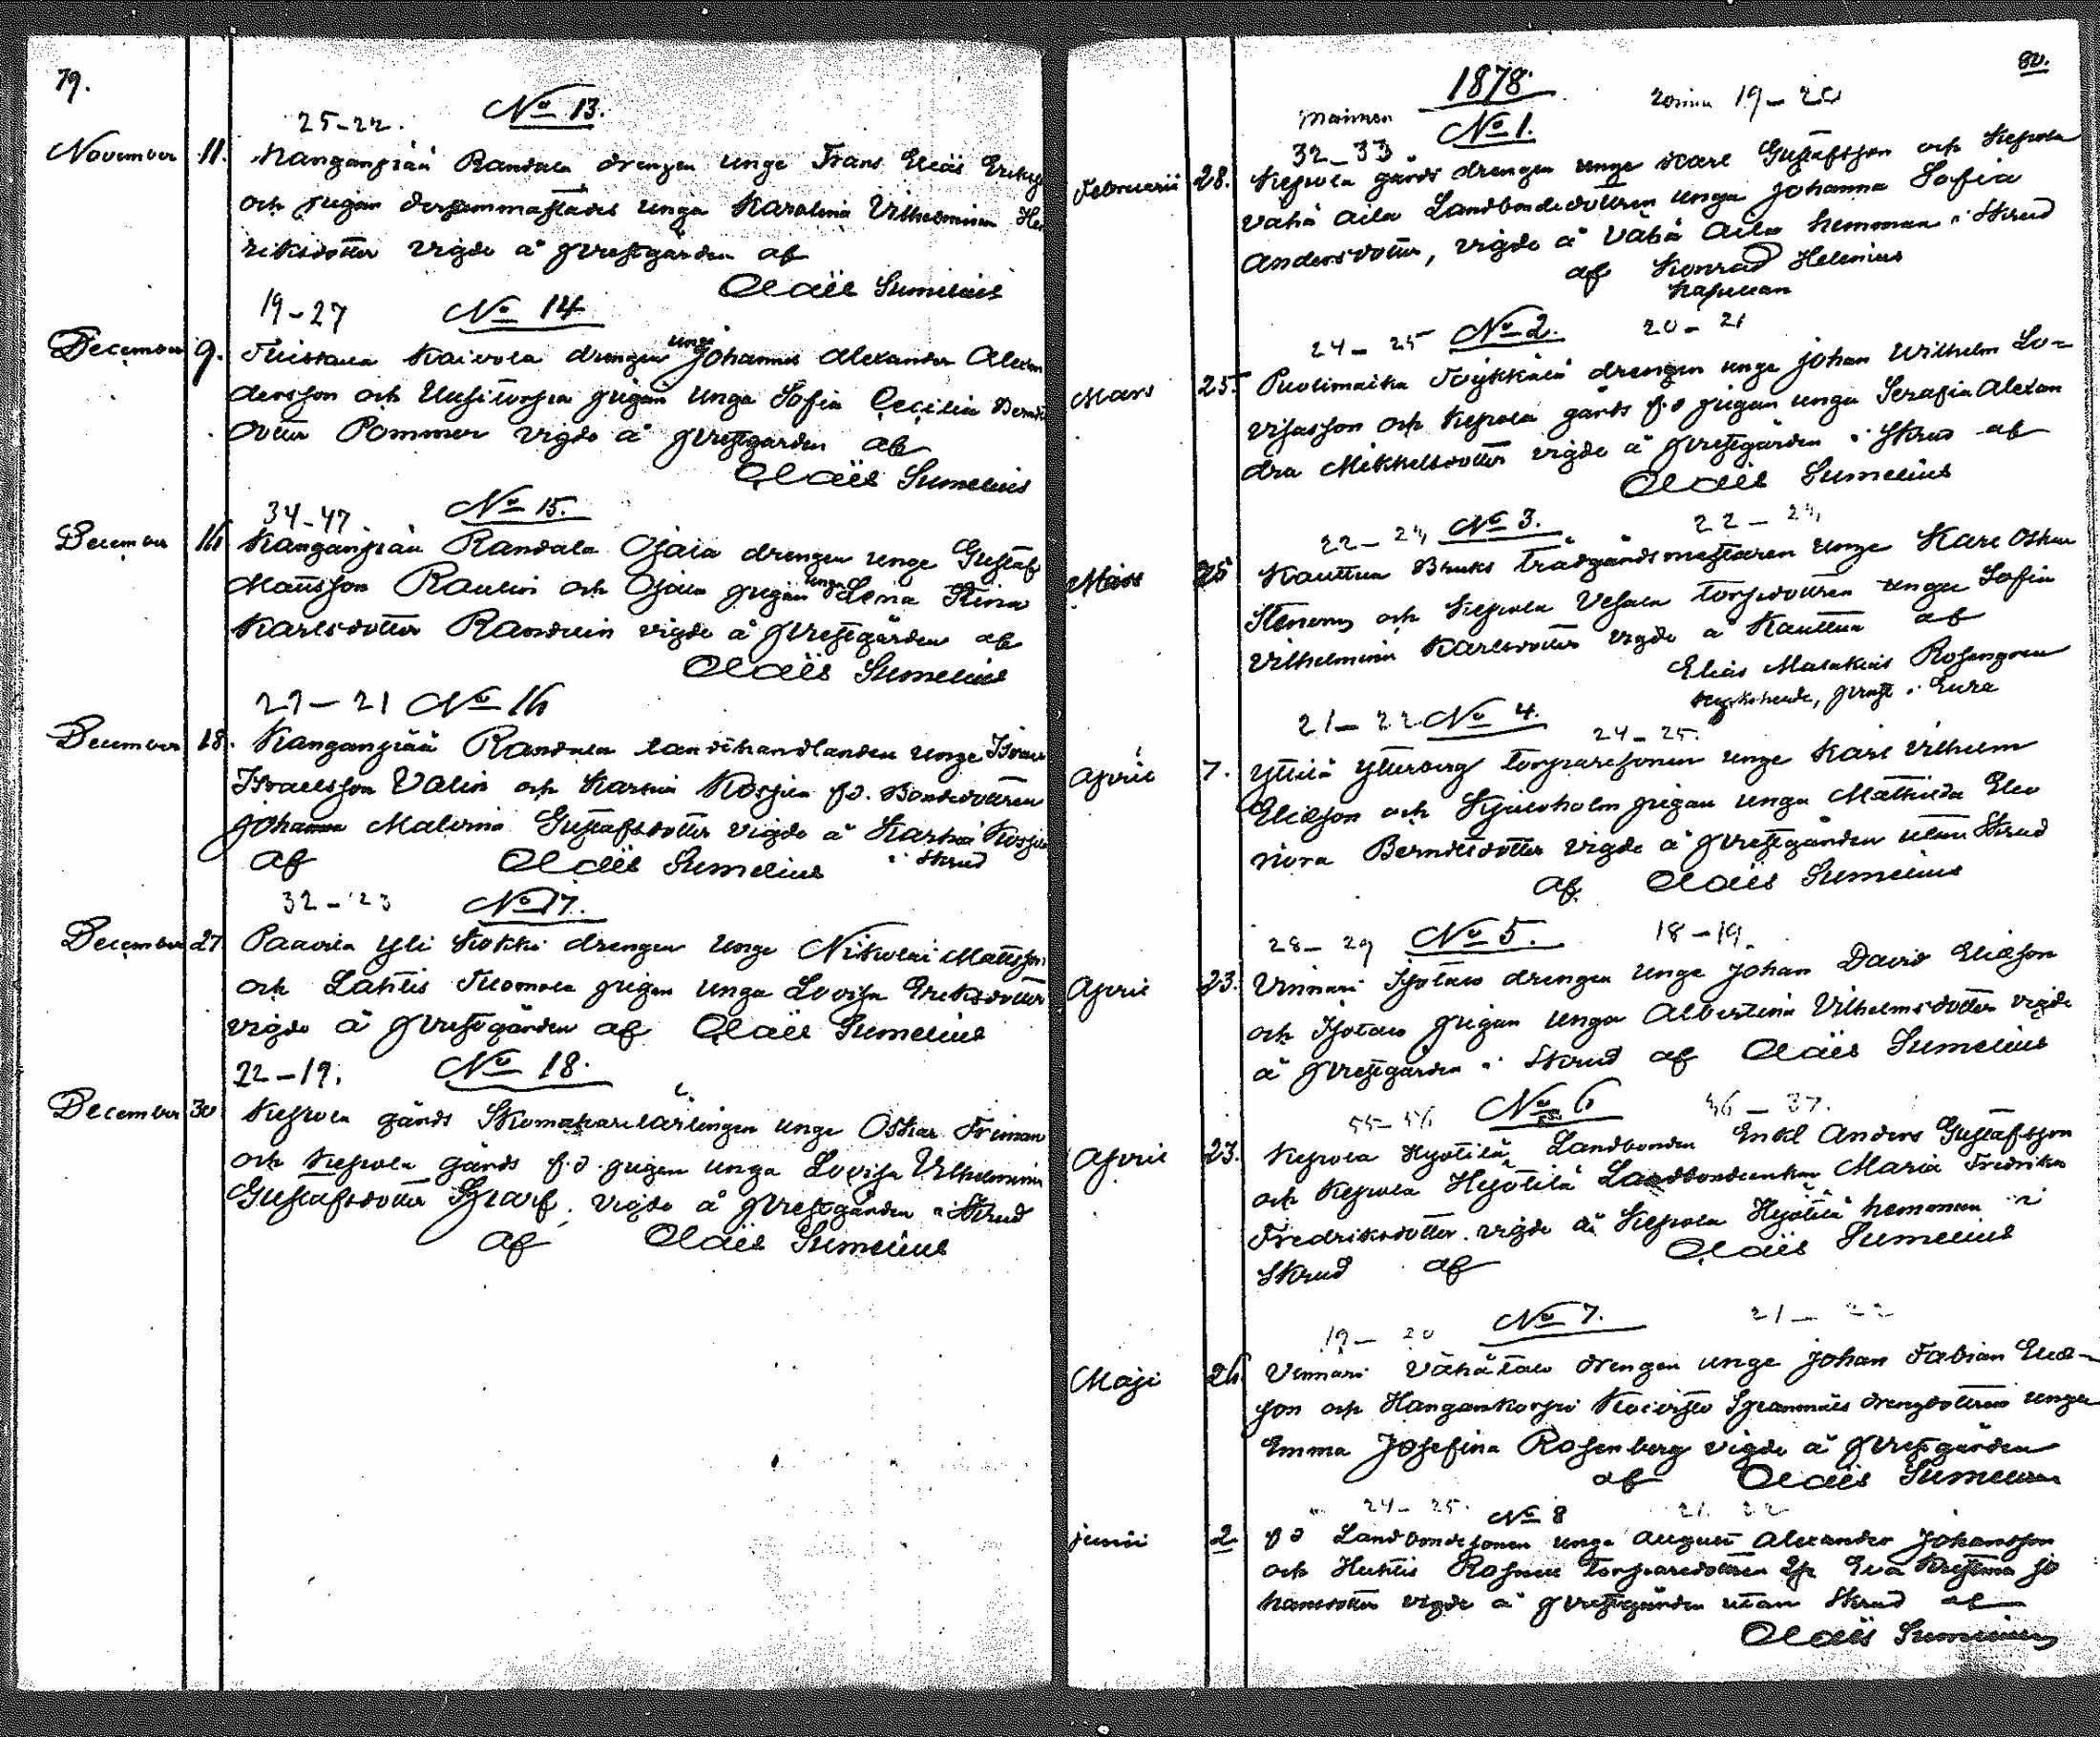 79.
25-22. No 13.
November 11. Kanganpää Randala drengen unge Frans Elias Eriks
och pigan dersammastädes unga Karolina Vilhelmina Hen
riksdotter vigde å Prestgården af
Claës Sumelius
19-27 No 14
December 9. Kaivola drengen unge Johannes Alexander Alexan
dersson och Uusitorpa pigan unga Sofia Cecilia
dotter Pommer vigde å Prestgården af
Claës Sumelius
34-47 No 15.
December 16 Kanganpää Randala Ojala drengen unge Gustaf
Mattsson Raulin och Ojala pigan unga Lena Stina
Karlsdotter Randelin vigde å Prestgården af
Claës Sumelius
27-21 No 16
December 18. Kanganpää Randala landthandlanden unge Israel
Israelsson Valin och Karhia Kospila f.d. Bondedottren
Johanna Malvina Gustafsdotter vigde å Karhia Kospila
af Claës Sumelius i Skrud
32-23 No 17.
December 27 Paavila Yli Kokki drengen unge Nikolai Mattsson
och Lähtis Tuomola pigan unga Lovisa Eriksdotter
vigde å Prestgården af Claës Sumelius
22-19. No 18.
December 30 Kepola gårds Skomakarelärlingen unge Oskar Friman
och Kepola gårds f.d. pigan unga Lovisa Vilhelmina
Gustafsdotter Sparf. vigde å Prestgården i Skrud
af Claës Sumelius
80.
1878.
19-20
No 1.
32-33
Februarii 28. Kepola gårds drengen unge Karl Gustafsson och Kepola
Vähä Äila Landbondedottren unga Johanna Sofia
Andersdotter, vigde å Vähä Äila hemman i Skrud
af Konrad Helenius
Kapellan
24-25 No 2. 20-21
Mars 25. Puolimatka Töykkälä drengen unge Johan Wilhelm Lo=
visasson och Kepola gårds f.d pigan unga Serafia Alexan
dra Mikkelsdotter vigde å Prestgården i Skrud af
Claës Sumelius
22-24 No 3. 22-24
Mars 25 Kauttua Bruks trädgårdsmästaren unge Karl Oskar
Stenroos och Kepola Vesala torpdottren unga Sofia
Vilhelmina Karlsdotter vigde å Kauttua af
Elias Malakias Rosengren
Kyrkoherde, prost i Eura
21-22 No 4. 24-25.
April 7. Yttilä Ytterberg torparesonen unge Karl Vilhelm
Eliasson och Sjöholm pigan unga Mathilda Eleo
nora Berndtsdotter vigde å Prestgården utan Skrud
af Claës Sumelius
28-29 No 5. 18-19.
April 23. Vinnari Isotalo drengen unge Johan David Eliasson
och Isotalo pigan unga Albertina Vilhelmsdotter vigde
å Prestgården i Skrud af Claës Sumelius
55-56 No 6 36-37.
April 23. Kepola Hyötilä Landbonden Enkl Anders Gustafsson
och Kepola Hyötilä Landbondeenkan Maria Fredrika
Fredriksdotter. vigde å Kepola Hyötilä hemman i
Skrud af Claës Sumelius
19-20 No 7. 21-22
Maji 26. Vinnari Vähätalo drengen unge Johan Fabian Elia-
son och Hangankorpi Koivisto Spannmåls drengdottren unga
Emma Josefina Rosenberg vigde å Prestgården
af Claës Sumelius
24-25. No 8 21 22
Junii 2 f d Landbondesonen unge August Alexander Johansson
och Huhtis Torparedottren Eva Kristina Jo
hansdotter vigde å Prestgården utan Skrud af
Claës Sumelius